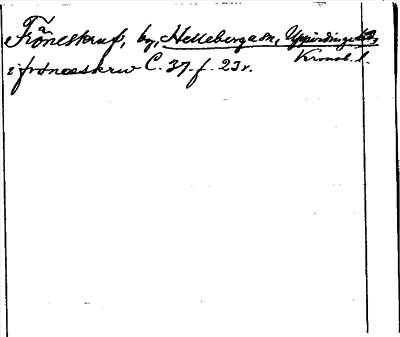 Fröneskruf, by, Hellebergasn, Uppvidinge hd,
Kronob. l.
i frönæskrw C. 37. f. 23 v.